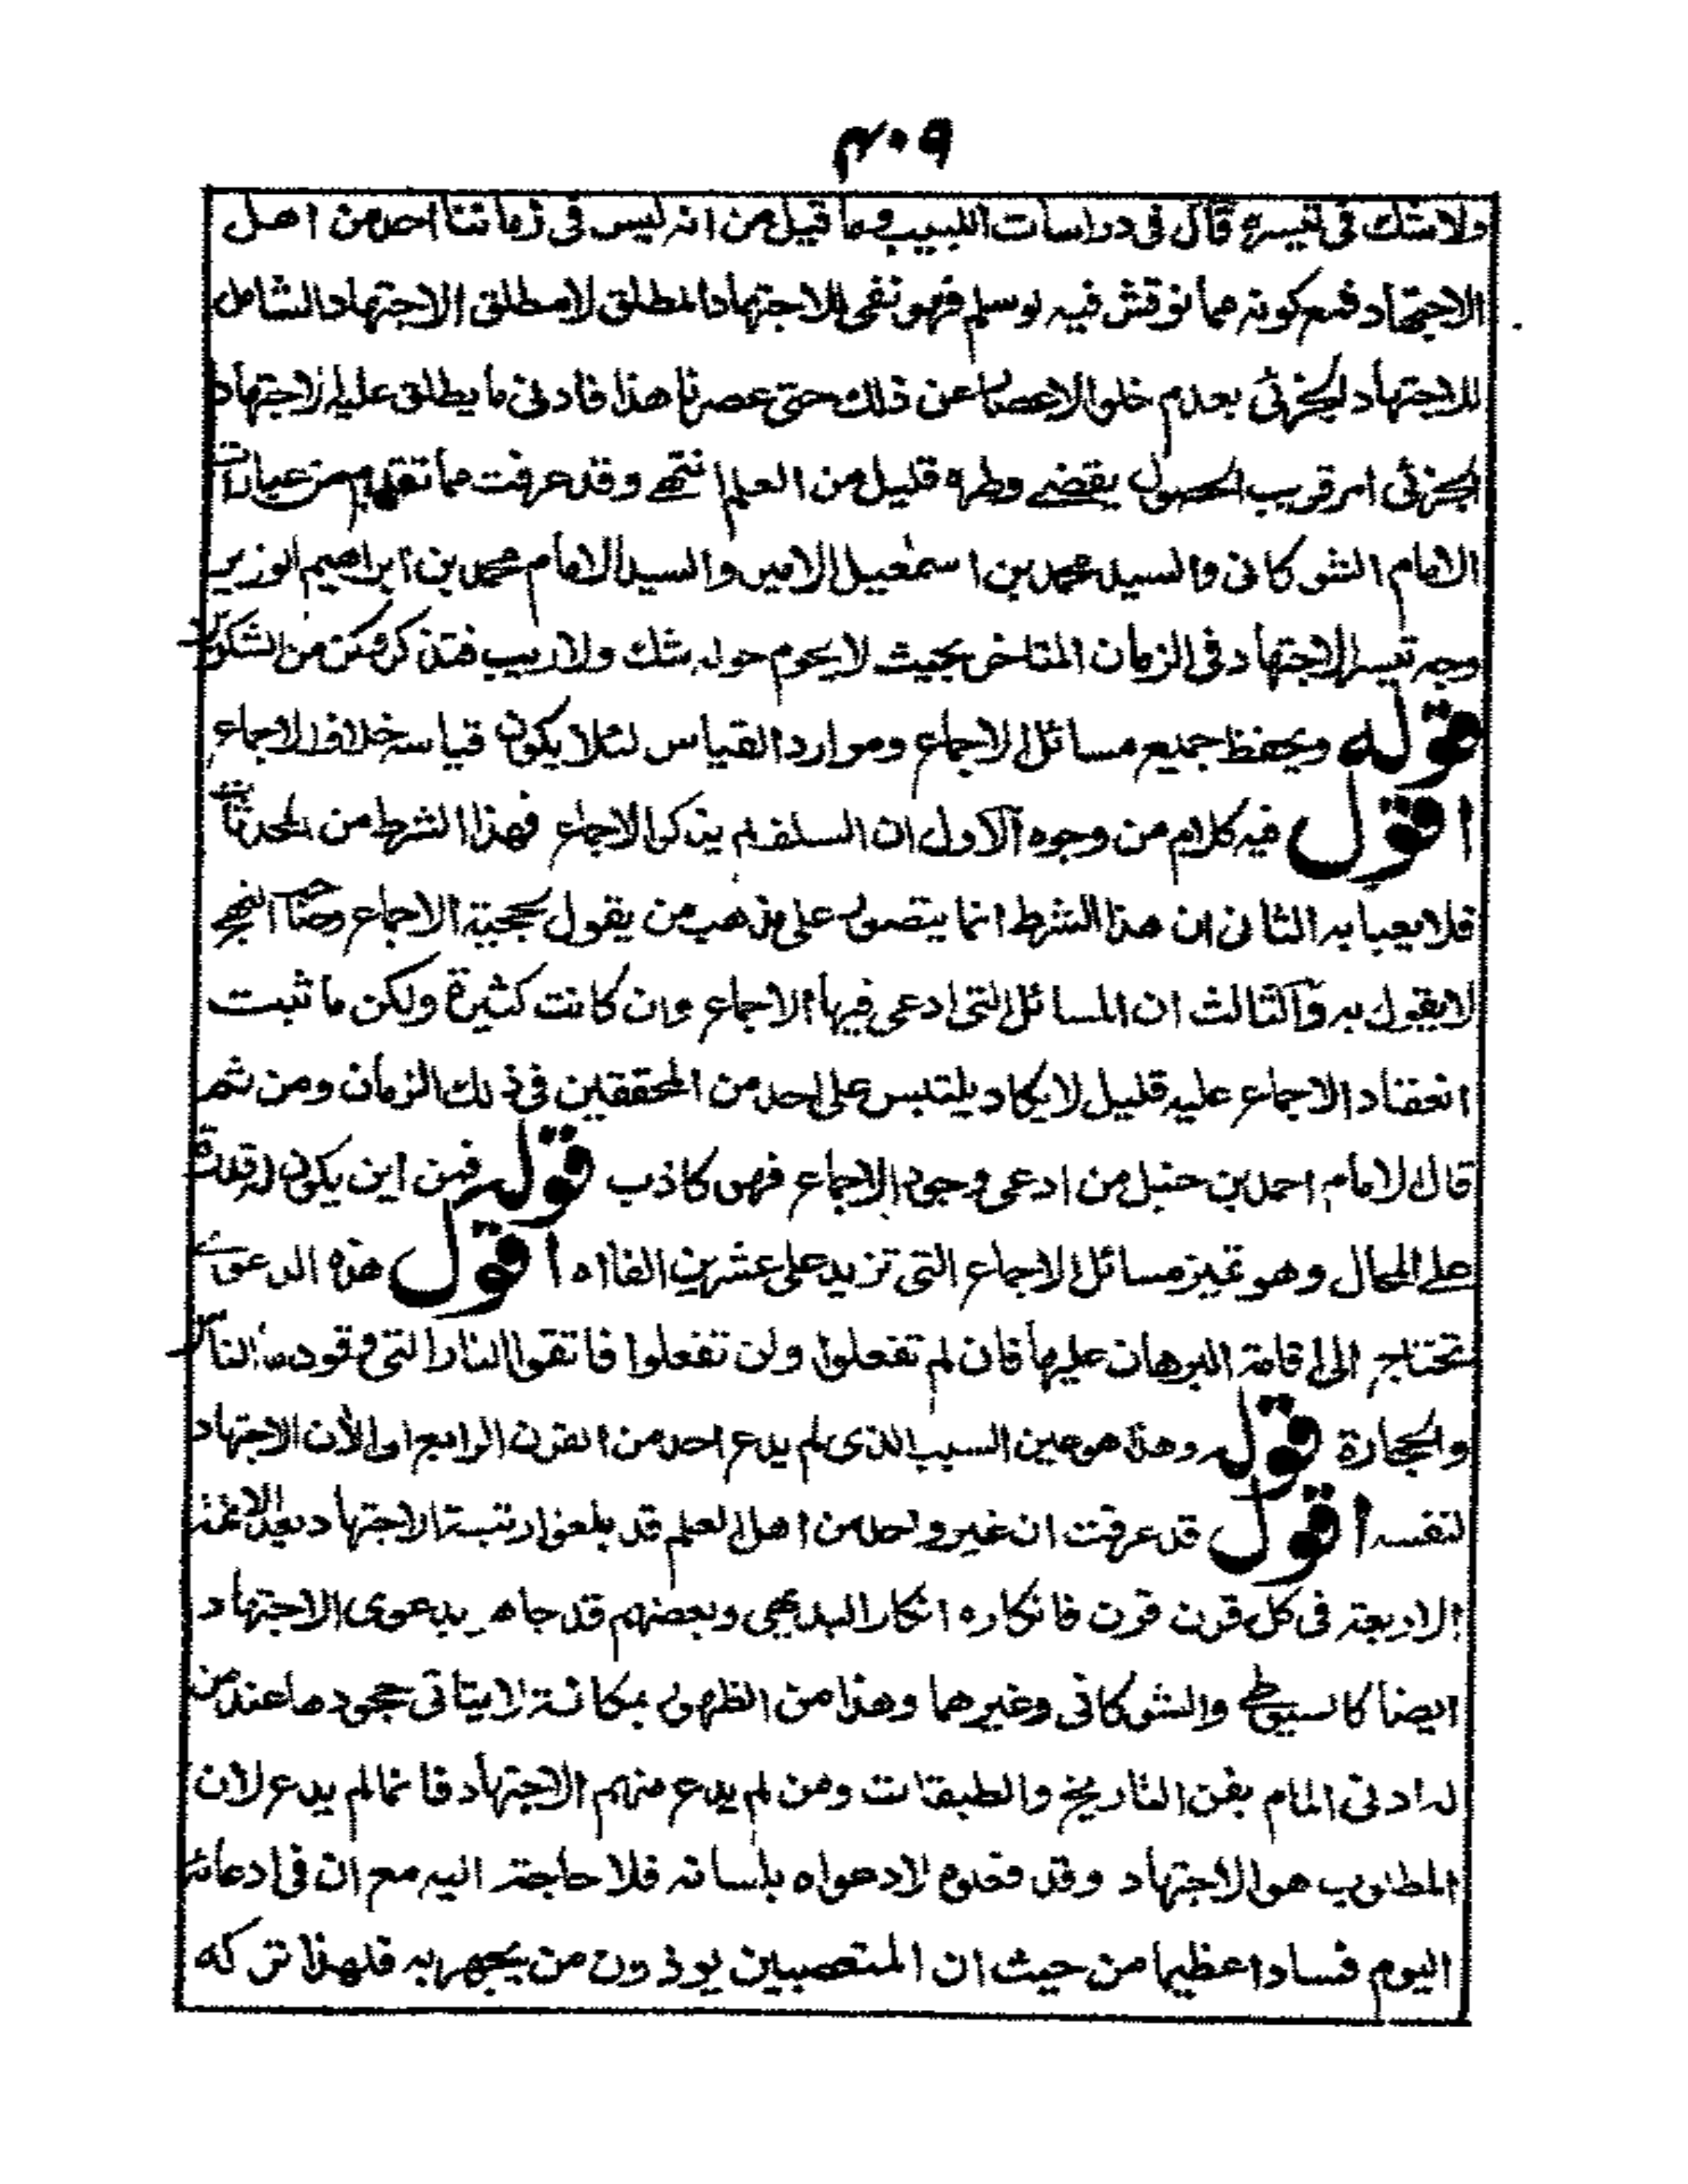 ٤٠٩
ولا شك فى تيسره قال فى دراسات اللبيب وما قيل من انه ليس فى زماننا احد من اهل
الاجتهاد فمع كونه مما نوقش فيه لو سلم فهو نفى للاجتهاد المطلق لا مطلق الاجتهاد الشامل
للاجتهاد الجزئى بعدم خلو الاعصار عن ذلك حتى عصرنا هذا فادنى ما يطلق عليه الاجتهاد
الجزئى امر قريب الحصول يقضے وطره قليل من العلم انتهے وقد عرفت مما تقدم من عبارات
الامام الشوكانى والسيد محمد بن اسمعيل الامير والسيد الامام محمد بن ابراهيم الوزير
وجه تيسر الاجتهاد فى الزمان المتاخر بحيث لا يحوم حوله شك ولا ريب فتذكر وكن من الشكور
قوله ويحفظ جميع مسائل الاجماع وموارد القياس لئلا يكون قياسه خلاف الاجماع
اقول فيه كلام من وجوه الاول ان السلف لم يذكر الاجماع فهذا الشرط من المحدثات
فلا يعبا به الثانى ان هذا الشرط انما يتصور على مذهب من يقول بحجية الاجماع وصاحب النهج
لا يقول به والثالث ان المسائل التى ادعى فيها الاجماع وان كانت كثيرة ولكن ما ثبت
انعقاد الاجماع عليه قليل لا يكاد يلتبس على احد من المحققين فى ذلك الزمان ومن ثم
قال الامام احمد بن حنبل من ادعى وجود الاجماع فهو كاذب قوله فمن اين يكون له قدرة
على المحال وهو تميز مسائل الاجماع التى تزيد على عشرين الفا اه اقول هذه الدعوے
تحتاج الى اقامة البرهان عليها فان لم تفعلوا ولن تفعلوا فاتقوا النار التى وقودها الناس
والحجارة قوله وهذا هو عين السبب الذى لم يدع احد من القرن الرابع الى الأن الاجتهاد
لنفسه اقول قد عرفت ان غير واحد من اهل العلم قد بلغوا رتبة الاجتهاد بعد الائمة
الاربعة فى كل قرن قرن فانكاره انكار البديهى وبعضهم قد جاهر بدعوى الاجتهاد
ايضا كالسيوطے والشوكانى وغيرهما وهذا من الظهور بمكانة لا يتاتى جحودها عند من
له ادنى المام بفن التاريخ والطبقات ومن لم يدع منهم الاجتهاد فانما لم يدع لان
المطلوب هو الاجتهاد وقد لا دعواه بلسانه فلا حاجة اليه مع ان فى ادعائه
اليوم فسادا عظيما من حيث ان المتعصبين يوذون من يجهر به فلهذا تركه